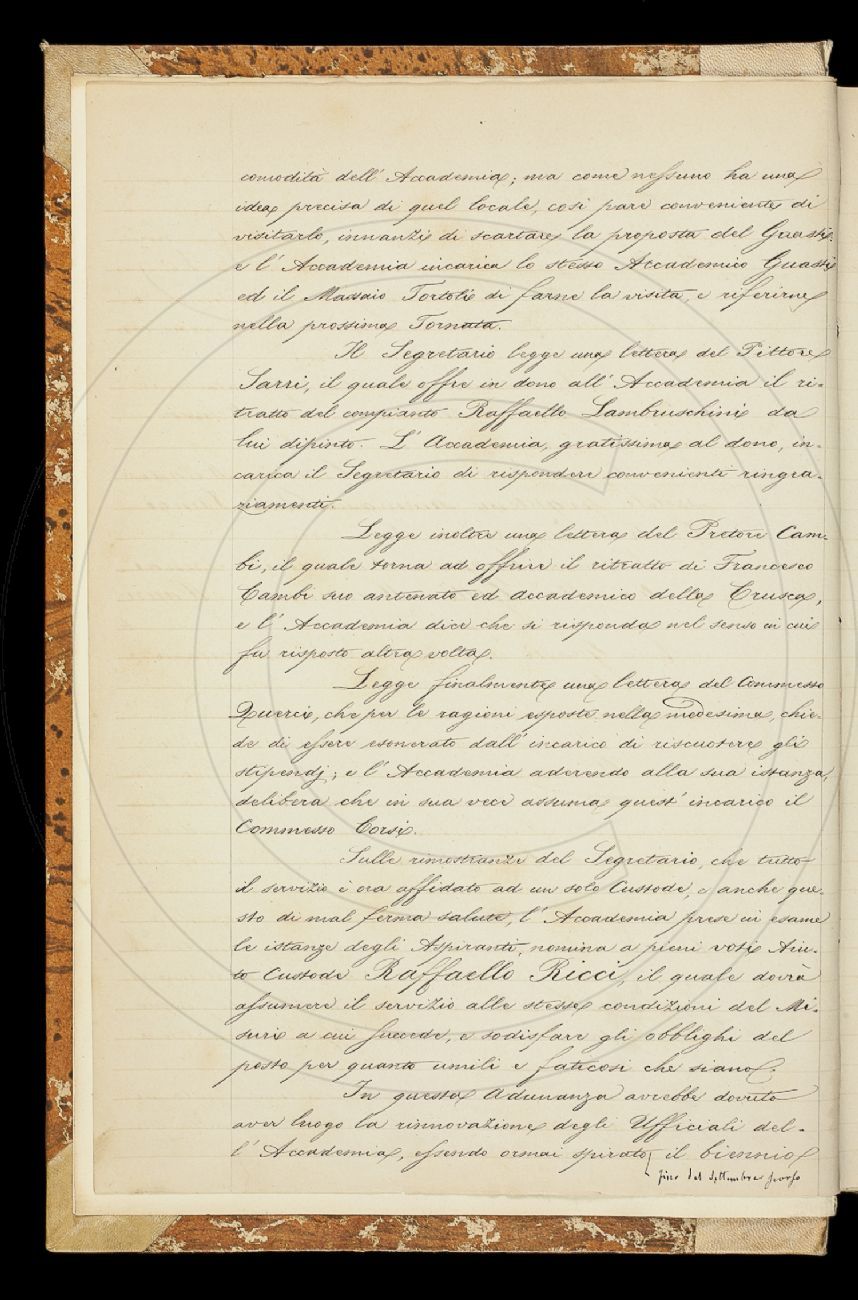 comodità dell'Accademia; ma come nessuno ha una
idea precisa di quel locale, così pare conveniente di
visitarlo, innanzi di scartare la proposta del Guasti:
e l'Accademia incarica lo stesso Accademico Guasti
ed il Massaio Tortoli di farne la visita, e riferirne
nella prossima Tornata.
Il Segretario legge una lettera del Pittore
Sarri, il quale offre in dono all'Accademia il ri-
tratto del compianto Raffaello Lambruschini da
lui dipinto. L'Accademia, gratissima al dono, in-
carica il Segretario di rispondere convenienti ringra-
ziamenti.
Legge inoltre una lettera del Pretore Cam-
bi, il quale torna ad offrire il ritratto di Francesco
Cambi suo antenato ed Accademico della Crusca,
e l'Accademia dice che si risponda nel senso in cui
fu risposto altra volta.
Legge finalmente una lettera del Commesso
Querci, che per le ragioni esposte nella medesima, chie-
de di essere esonerato dall'incarico di riscuotere gli
stipendj; e l'Accademia aderendo alla sua istanza,
delibera che in sua vece assuma quest'incarico il
Commesso Corsi.
Sulle rimostranze del Segretario, che tutto
il servizio è ora affidato ad un solo Custode, e anche que-
sto di mal ferma salute, l'Accademia prese in esame
le istanze degli Aspiranti, nomina a pieni voti Aiu-
to Custode Raffaello Ricci, il quale dovrà
assumere il servizio alle stesse condizioni del Mi-
suri a cui succede, e sodisfare gli obblighi del
posto per quanto umili e faticosi che siano.
In questa Adunanza avrebbe dovuto
aver luogo la rinnovazione degli Ufficiali del-
l'Accademia, essendo ormai spirato il biennio
fino dal Settembre scorso